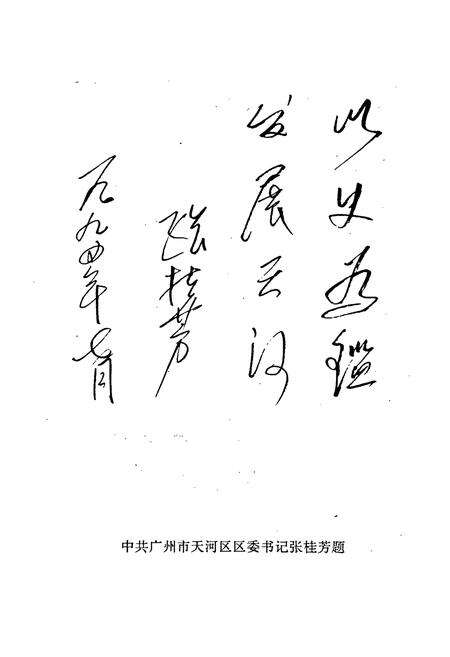 以史为鑑
发展天河
张桂芳
一九九四年七月
中共广州市天河区区委书记张桂芳题